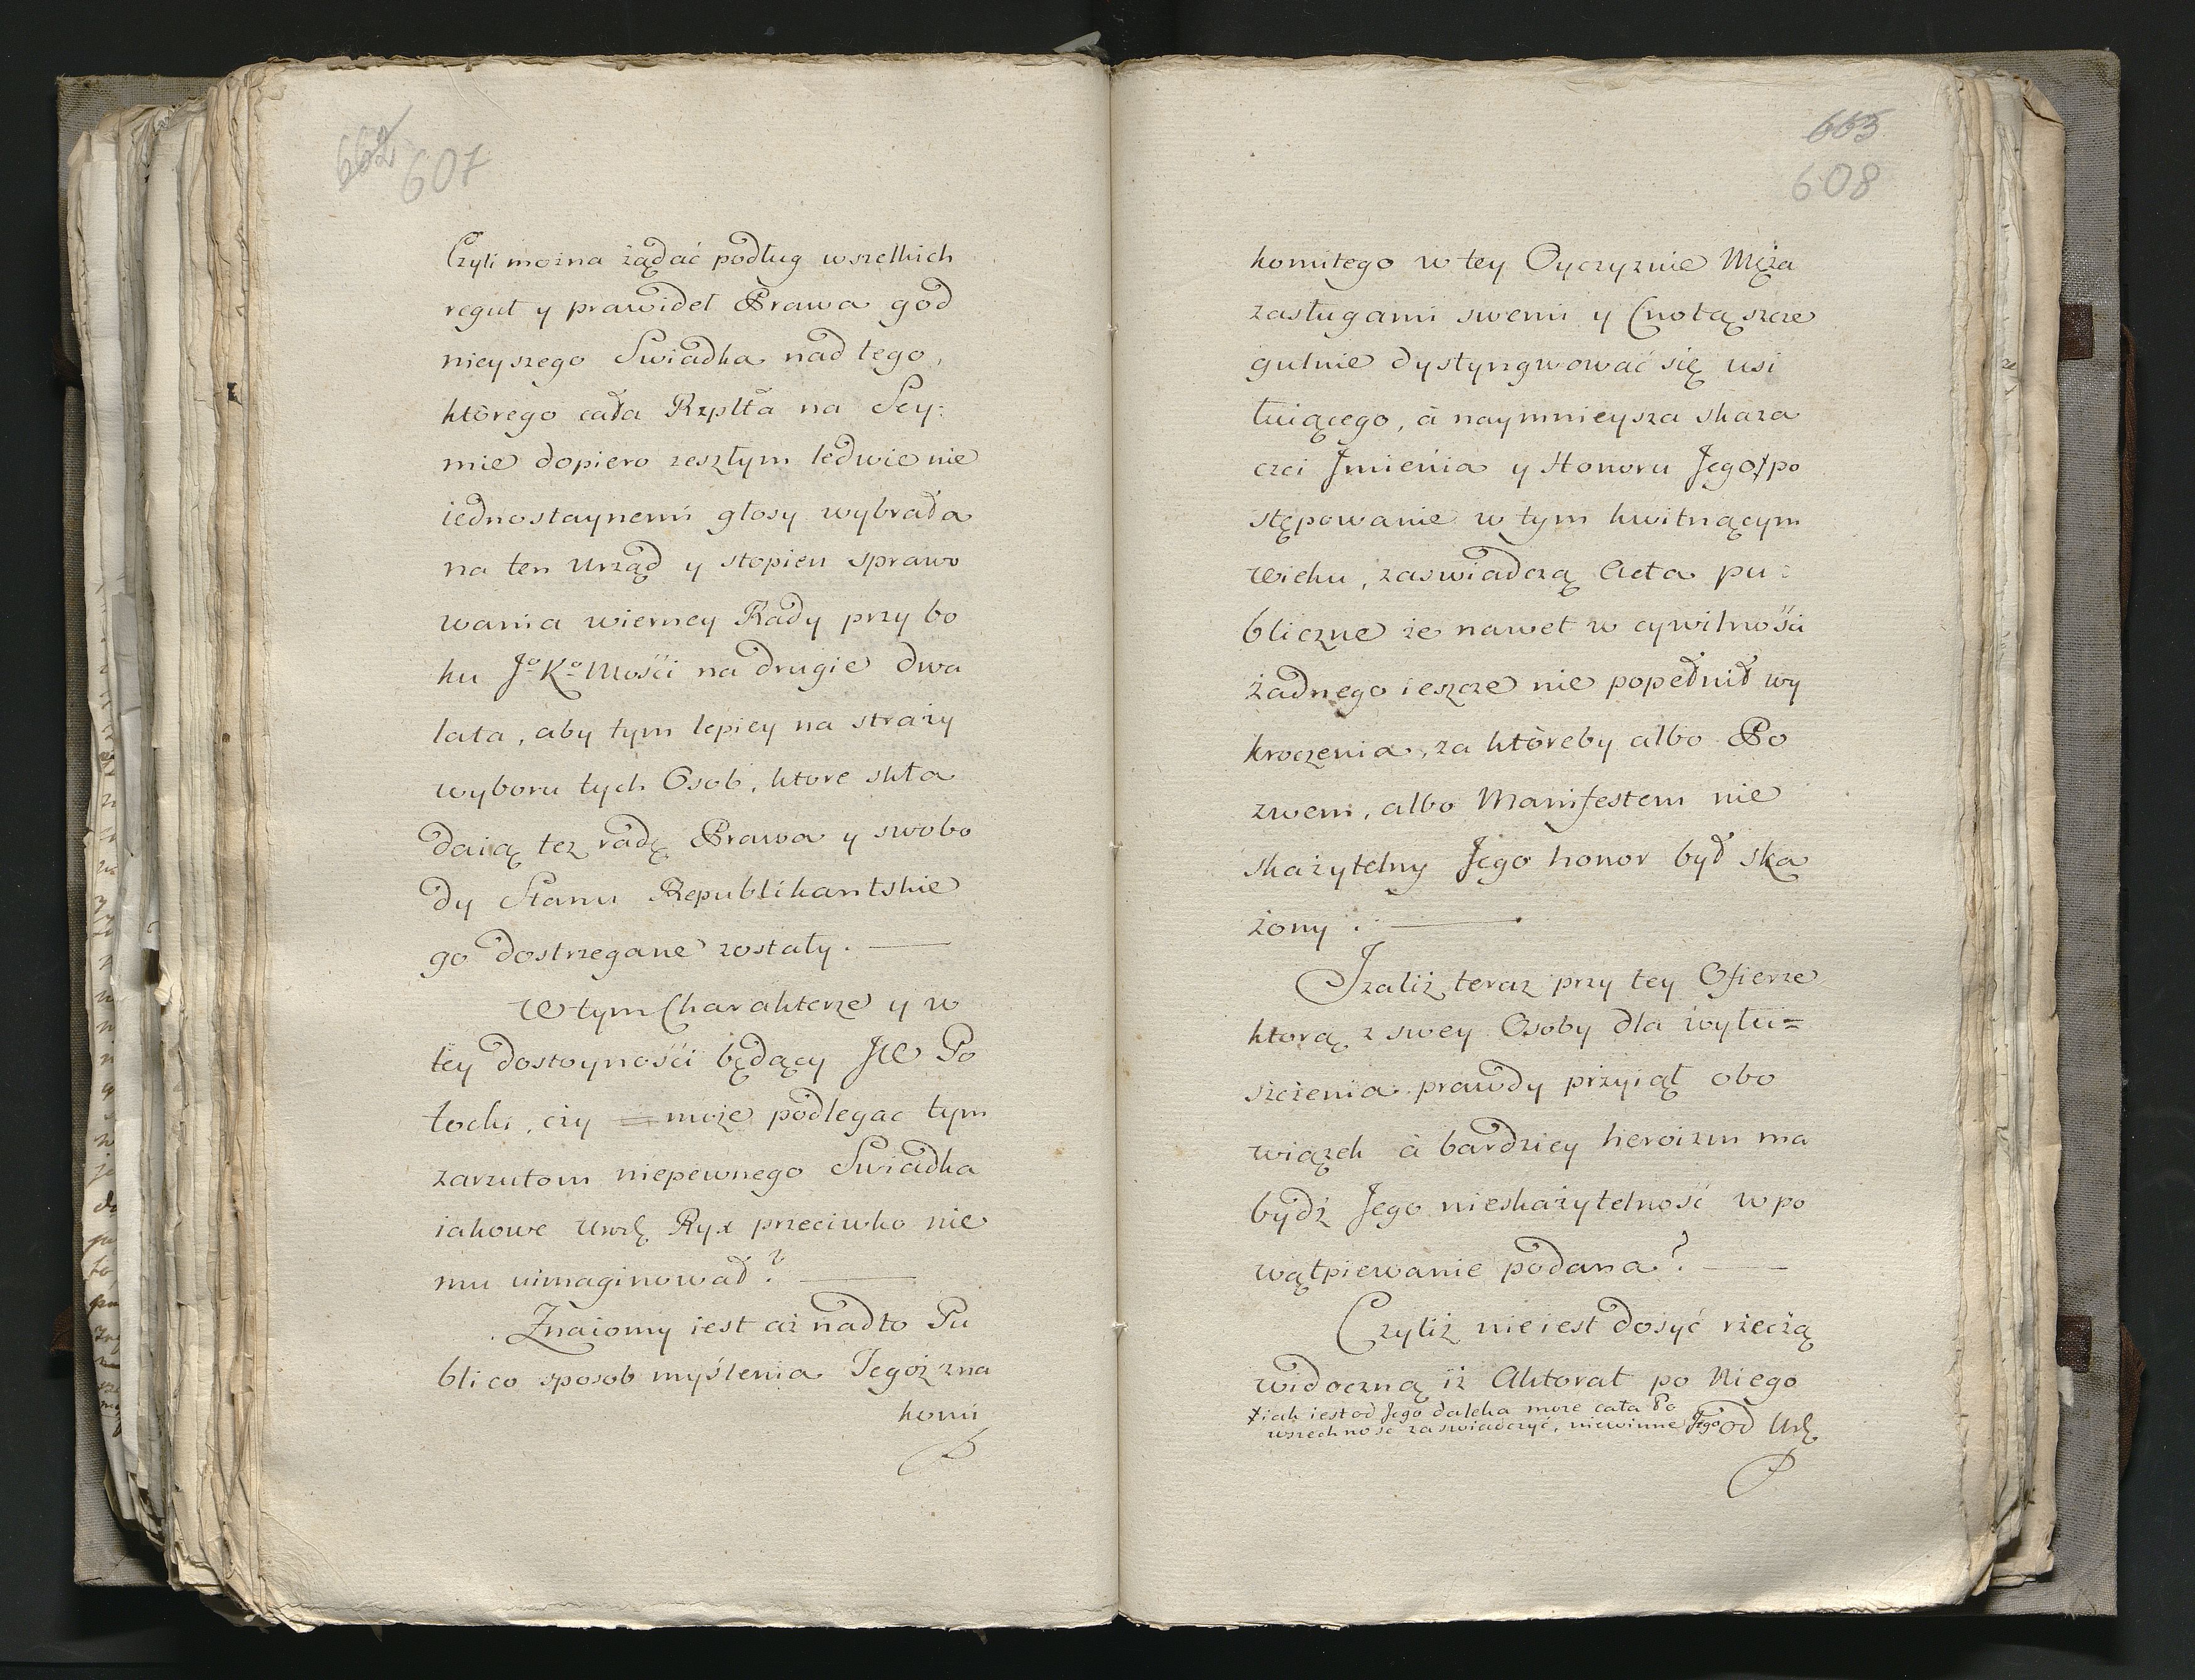 662
607
Czyli można żądać podług wszelkich
reguł y prawideł Prawa god
nieyszego Swiadka nad tego,
ktòrego cała Rzplta na Sey:
mie dopiero zeszłym ledwie nie
iednostaynemi głosy wybrała
na ten Urząd y stopien sprawo
wania wierney Rady przy bo
ku Jº Kº Mości na drugie dwa
lata, aby tym lepiey na straży
wyboru tych Osob, ktore skła
daią tez radę Prawa y swobo
dy Stanu Republikantskie
go dostrzegane zostały.
W tym Charakterze y w
tey dostoyności będący JW Po
tocki, czy może podlegac tym
zarzutom niepewnego Swiadka
iakowe Urdę Ryx przeciwko nie
mu uimaginował?
Znaiomy iest aż nadto Pu
blico sposob myślenia Tegóż zna
komi
663
608
komitego w tey Oyczyznie Męża
zasługami swemi y Cnotą szcze
gulnie dystyngwować się usi
łuiącego, à naymnieysza skaza
czci Jmienia y Honoru Jego ɟ po
stępowanie w tym kwitnącym
Wieku, zaswiadczą Acta pu:
bliczne że nawet w cywilnośći
żadnego ieszcze nie popełnił wy
kroczenia, za ktòreby albo Po
zwem, albo Manifestem nie
skażytelny Jego honor był ska
żony.
Jzaliż teraz przy tey Ofierze
ktorą z swey Osoby dla wyłu=
szczenia prawdy przyiął obo
wiązek à bardziey heroizm ma
bydź Jego nieskażytelność w po
wątpiewanie podana?
Czyliż nie iest dosyć rzeczą
widoczną iż Aktorat po Niego
ɟ iak iest od Jego daleka może cała Po
wszechnosć zaswiadczyć, niewinne Jego od Urdę